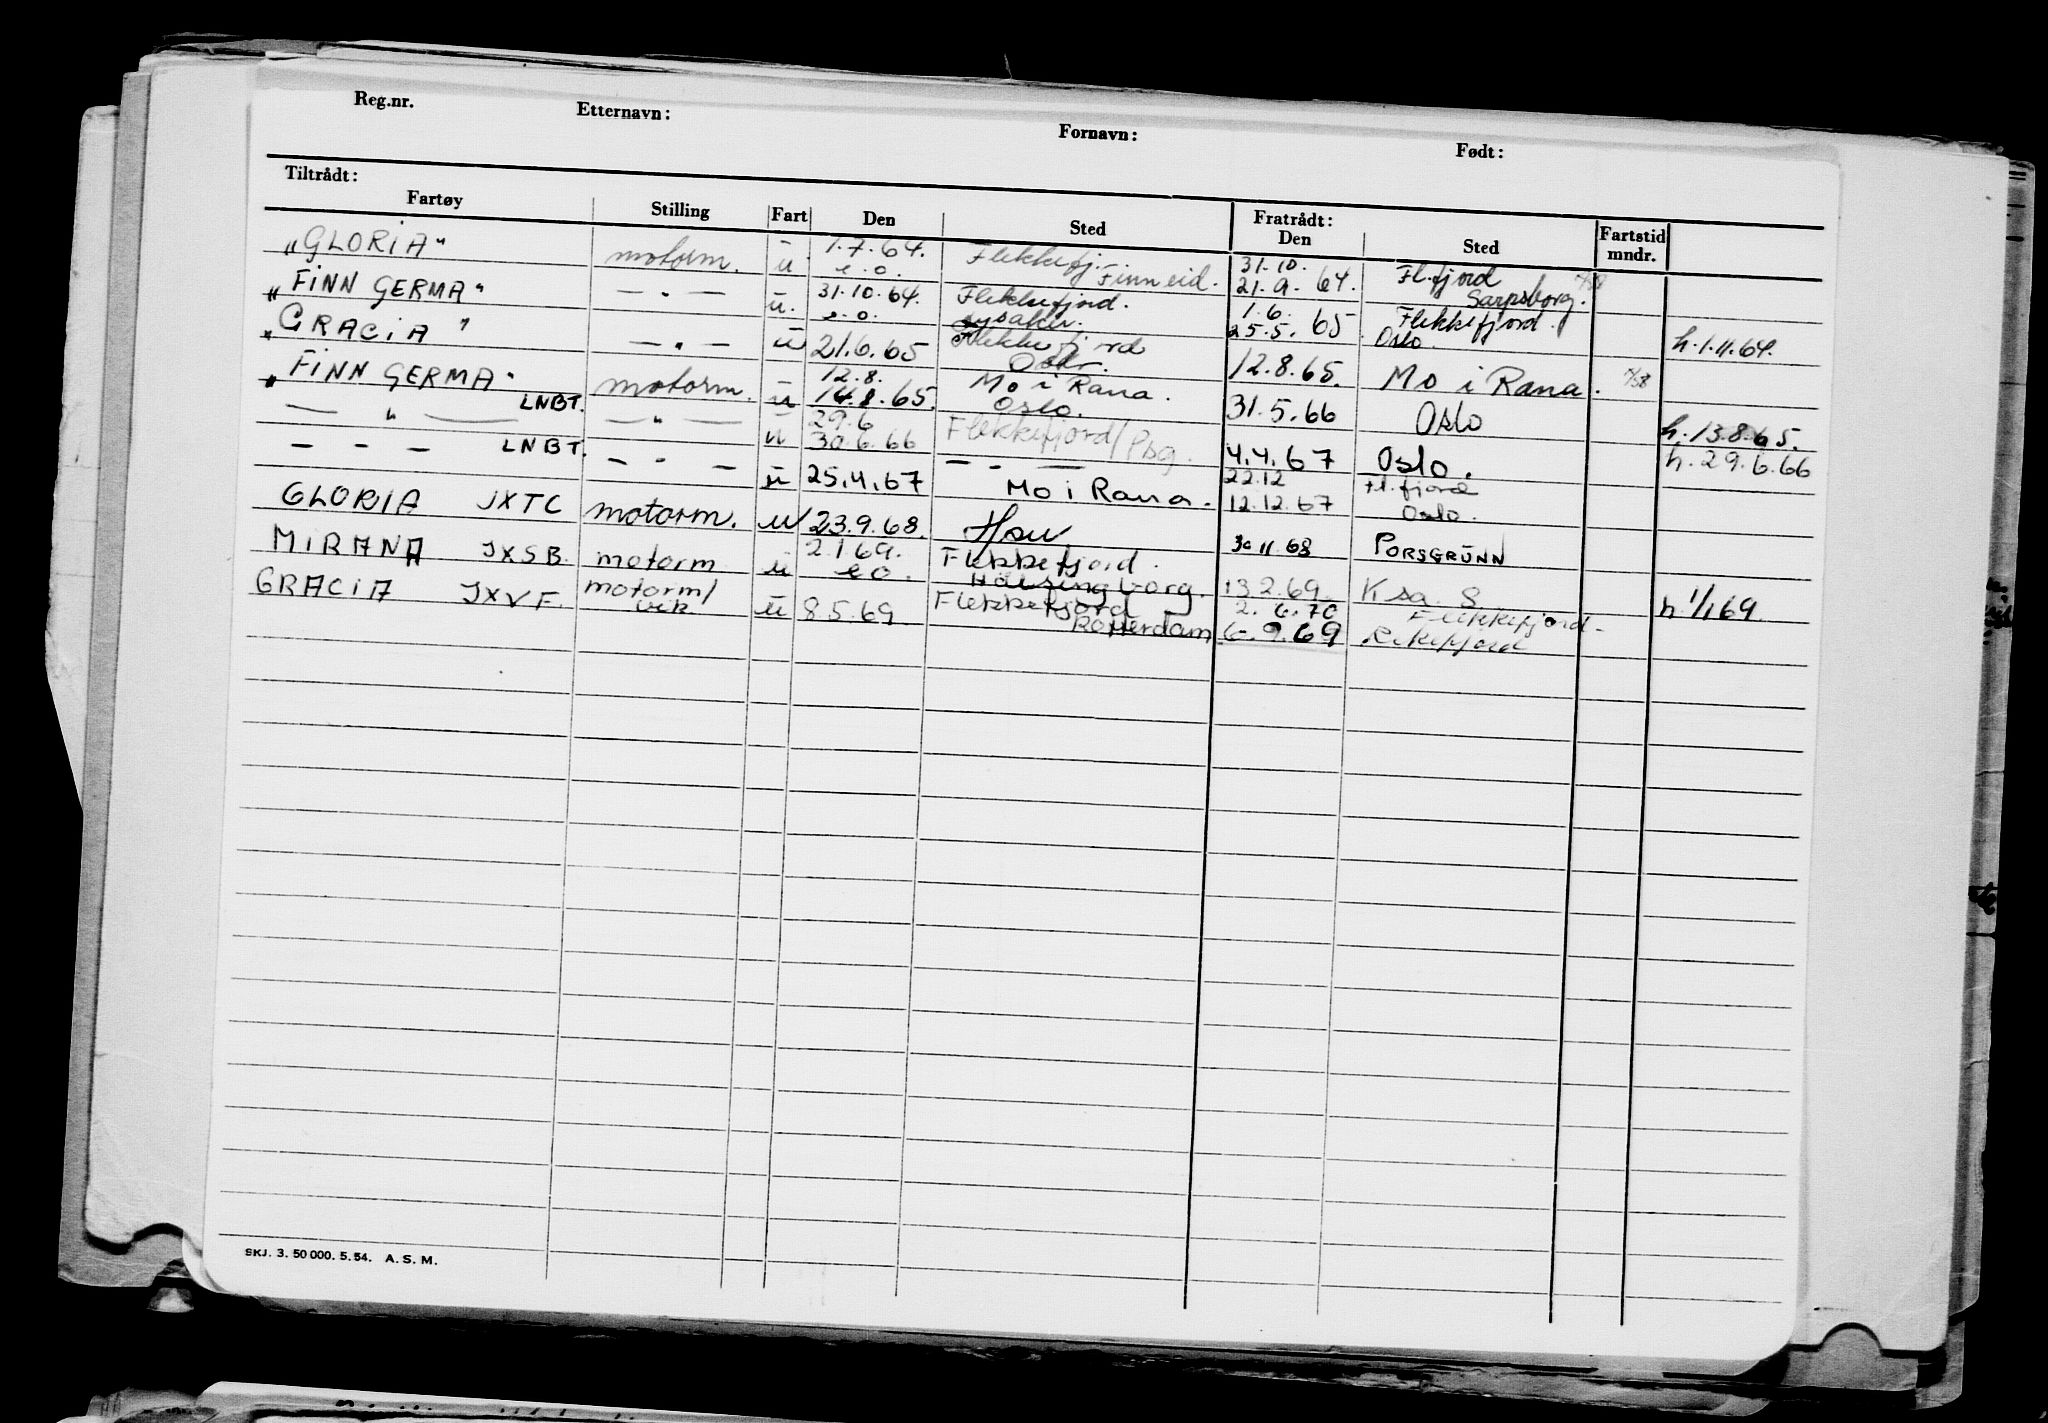 Reg.nr. Etternavn: Fornavn: Født:
Tiltrådt: Fratrådt:
Fartøy Stilling Fart Den Sted Den Sted Fartstid mndr.
„GLORIA" motorm. u 1.7.64. e.o. Flekkefj. Finneid. 31.10. 21.9.64. Fl.fjord Sarpsborg.
„FINN GERMA" — " — u. 31.10.64. e.o. Flekkefjord. Lysaker. 1.6. 25.5.65 Flekkefjord. Oslo. h.1.11.64.
„GRACIA" — " — u 21.6.65 Flekkefjord 12.8.65. Mo i Rana.
„FINN GERMA" LNBT. motorm. u 12.8. 14.8.65. Mo i Rana. Oslo. 31.5.66 Oslo h.13.8.65.
— " — LNBT. — " — u 29.6 30.6.66 Flekkefjord/Psg. 4.4.67 Oslo. h.29.6.66
— — — — " — u 25.4.67 — " — Mo i Rana. 22.12 12.12.67 Fl.fjord Oslo.
GLORIA JXTC motorm. u 23.9.68. Hsu 30.11.68 PORSGRUNN
MIRANA JXSB. motorm u 2.1.69. e.o. Flekkefjord. Hälsingborg. 13.2.69. Ksa. S h.1/1.69.
GRACIA JXVF. motorm/vik u 8.5.69 Flekkefjord Rotterdam 2.6.70 6.9.69 Flekkefjord Rekefjord
SKJ. 3. 50 000. 5. 54. A. S. M.